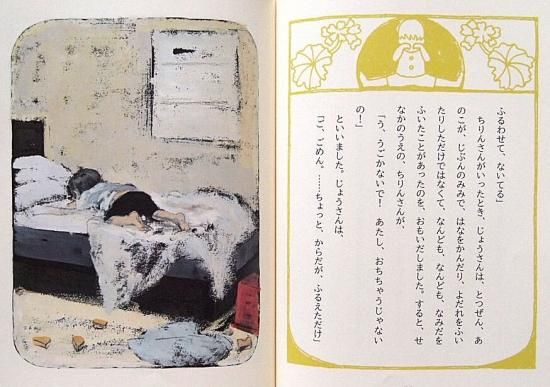 ふるわせて、ないてる」
ちりんさんがいったとき、じょうさんは、とつぜん、あ
のこが、じぶんのみみで、はなをかんだり、よだれをふい
たりしただけではなくて、なんども、なんども、なみだを
ふいたことがあったのを、おもいだしました。すると、せ
なかのうえの、ちりんさんが、
「う、うごかないで！　あたし、おちちゃうじゃない
の！」
といいました。じょうさんは、
「ご、ごめん。……ちょっと、からだが、ふるえただけ」